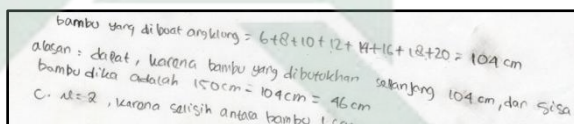 bambu yang di buat angklong = 6+8+10+12+14+16+18+20 = 104 cm
alasan : dapat, karena bambu yang dibutukhan sepanjang 104 cm, dan sisa
bambu dika adalah 150cm - 104cm = 46 cm
C. n=2, karena selisih antara bambu 1